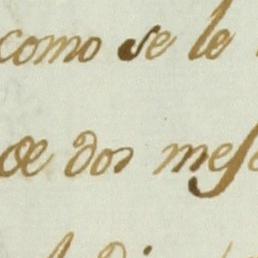 como se le
de dos mes